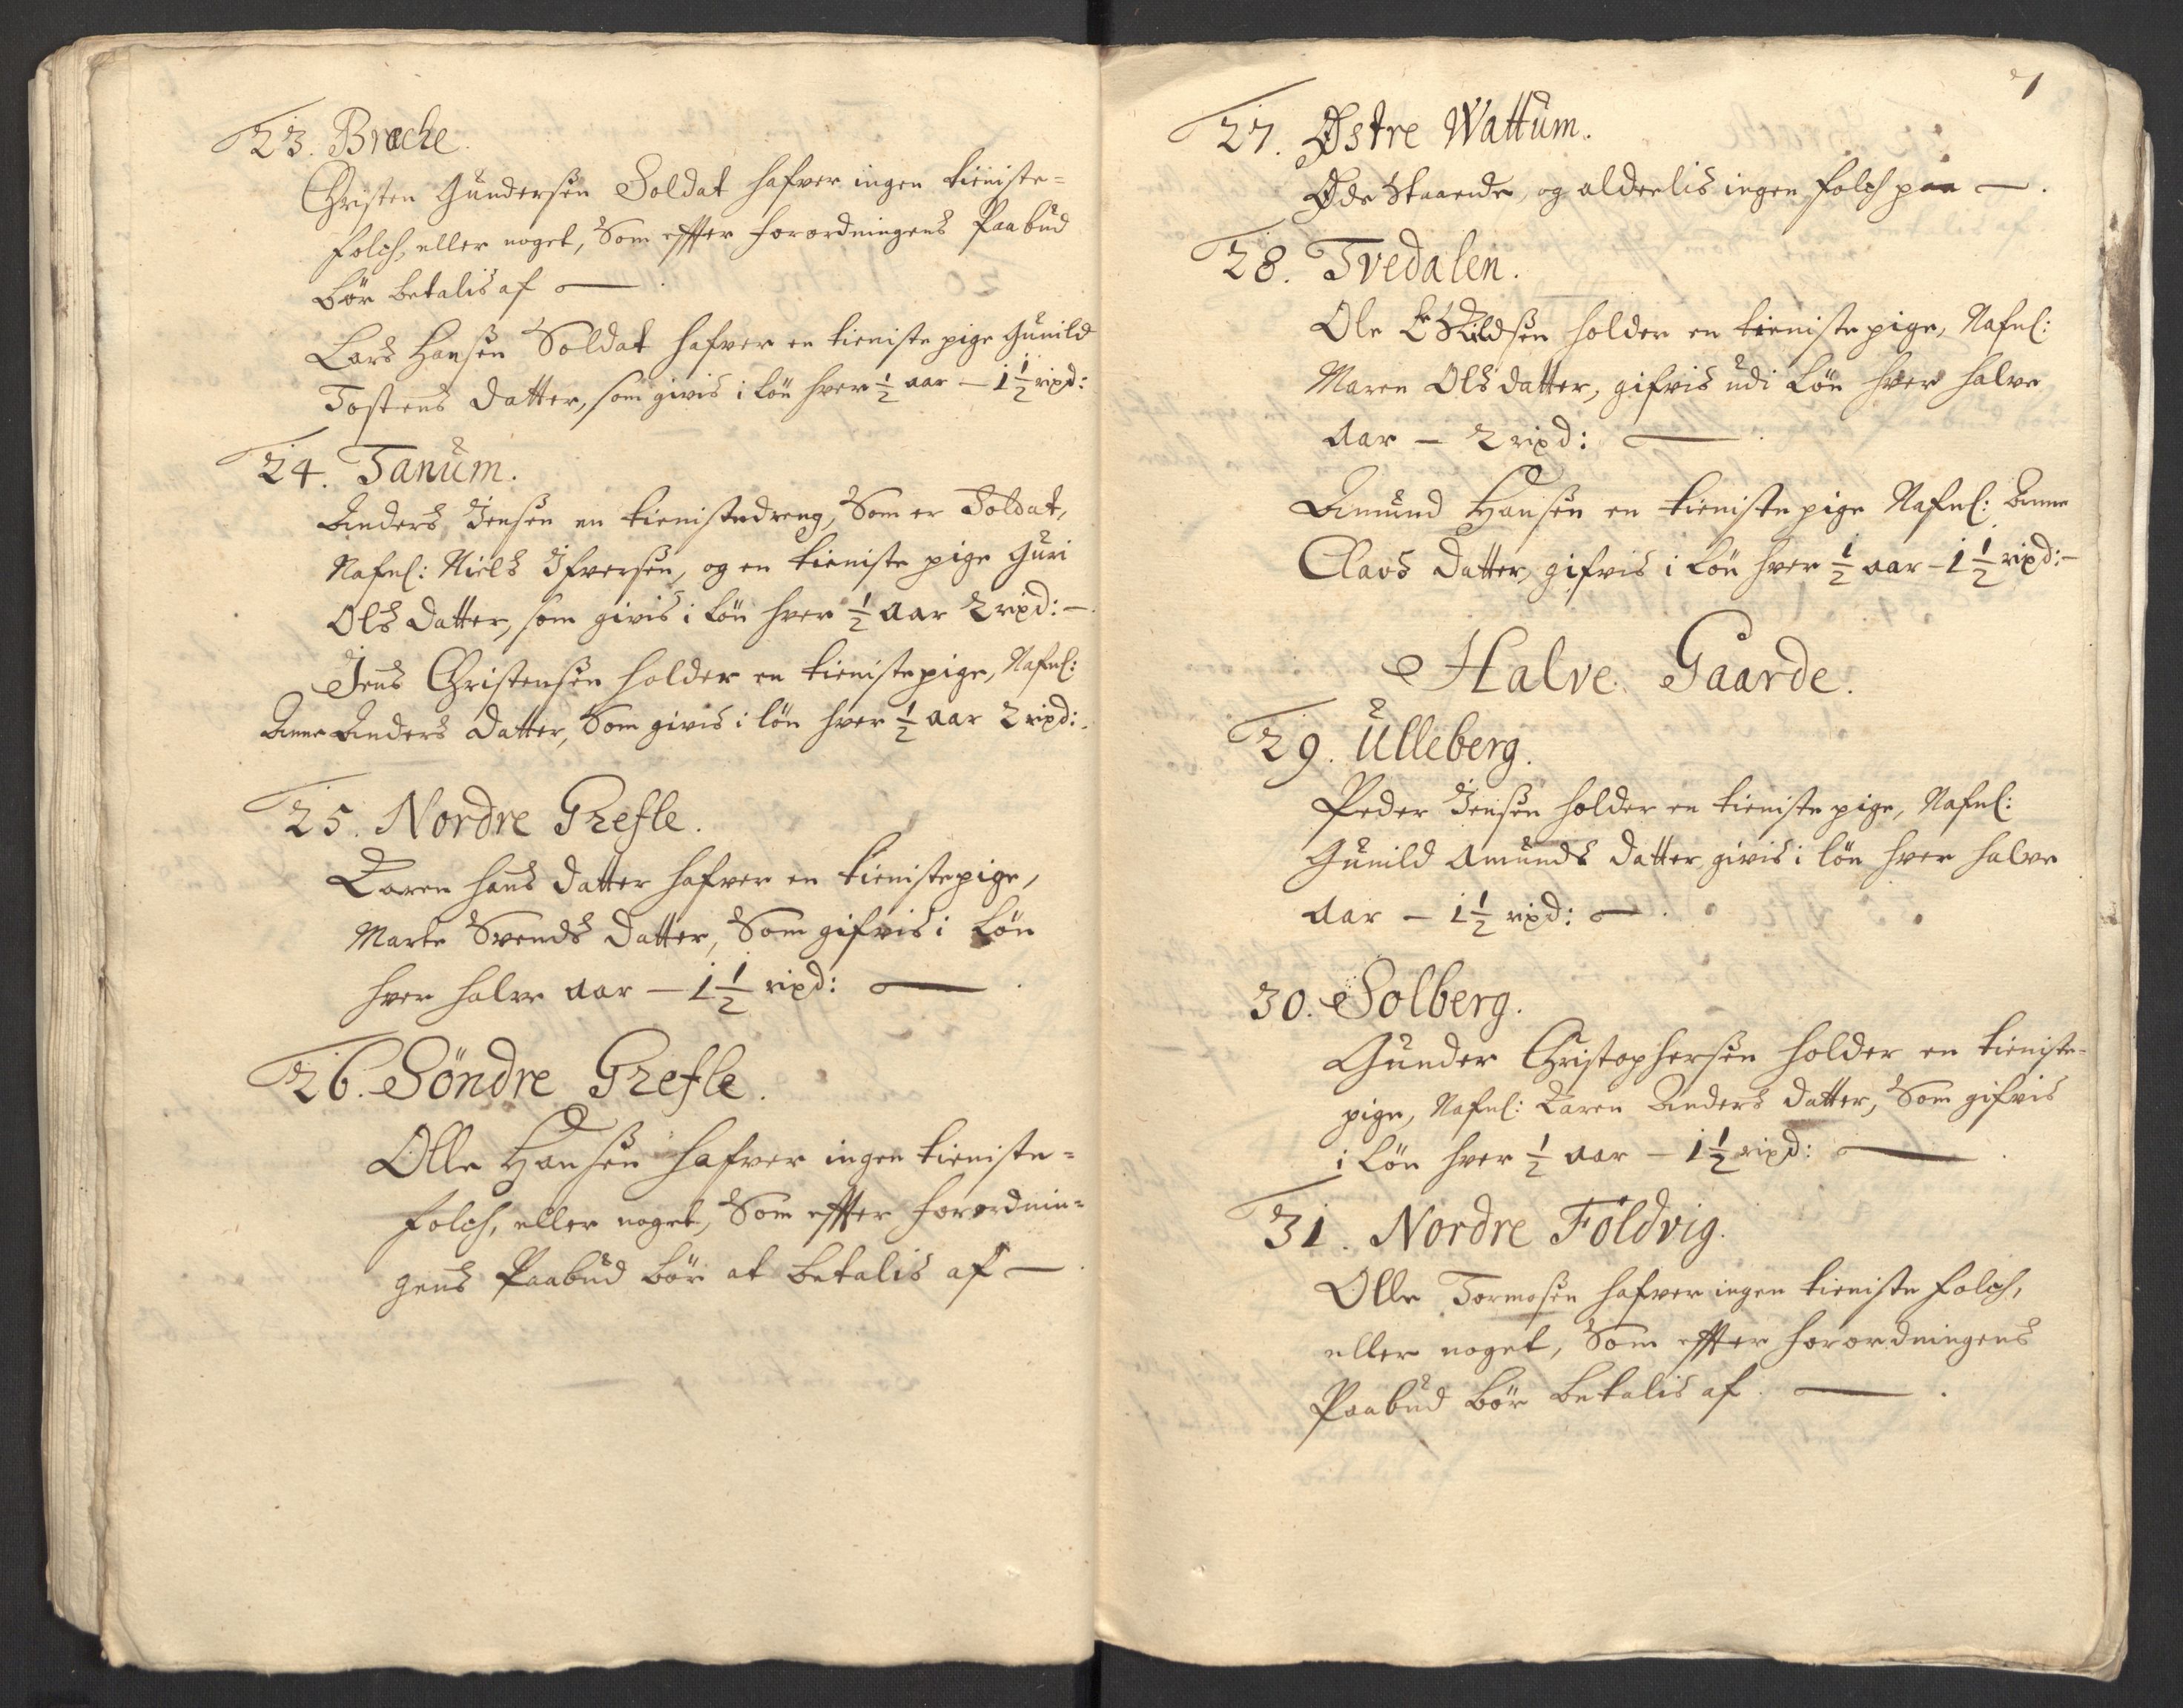 23. Broche.
Christen Gundersen Soldat hafver ingen tieniste=
folch, eller noget, Som effter forordningens Paabud
bør betalis af —.
Lars Hansen Soldat hafver en tieniste pige Gunild
Tostens datter, som givis i løn hver ½ aar — 1½ rixd:
24. Tanum.
Anders Jensen en tienistedreng, Som er Soldat,
Nafnl: Niels Ifversen, og en tieniste pige Guri
Ols datter, som givis i løn hver ½ aar 2 rixd: —.
Jens Christensen holder en tienistepige, Nafnl:
Anne Anders datter, Som givis i løn hver ½ aar 2 rixd:.
25. Nordre Grefle.
Karen hans datter hafver en tienistepige,
Marte Svends datter, Som gifvis i løn
hver halve aar — 1½ rixd: —.
26. Söndre Grefle.
Olle Hansen hafver ingen tieniste=
folch, eller noget, Som effter forordnin=
gens Paabud bør at betalis af —.
7
27. Østre Wattum.
Øde Staaende, og alderlis ingen folch paa —.
28. Tvedalen.
Ole Eskildsen holder en tieniste pige, Nafnl:
Maren Ols datter, gifvis udi løn hver halve
aar — 2 rixd: —.
Amund Hansen en tieniste pige Nafnl: Anne
Clavs datter, gifvis i løn hver ½ aar — 1½ rixd: —
Halve Gaarde.
29. Ulleberg.
Peder Jensen holder en tieniste pige, Nafnl:
Gunild Amunds datter, givis i løn hver halve
aar — 1½ rixd: —.
30. Solberg.
Gunder Christophersen holder en tieniste-
pige, Nafnl: Karen Anders datter, Som gifvis
i løn hver ½ aar — 1½ rixd: —.
31. Nordre Foldvig.
Olle Tormosen hafver ingen tieniste folch,
eller noget, Som effter forordningens
Paabud bør betalis af. —.